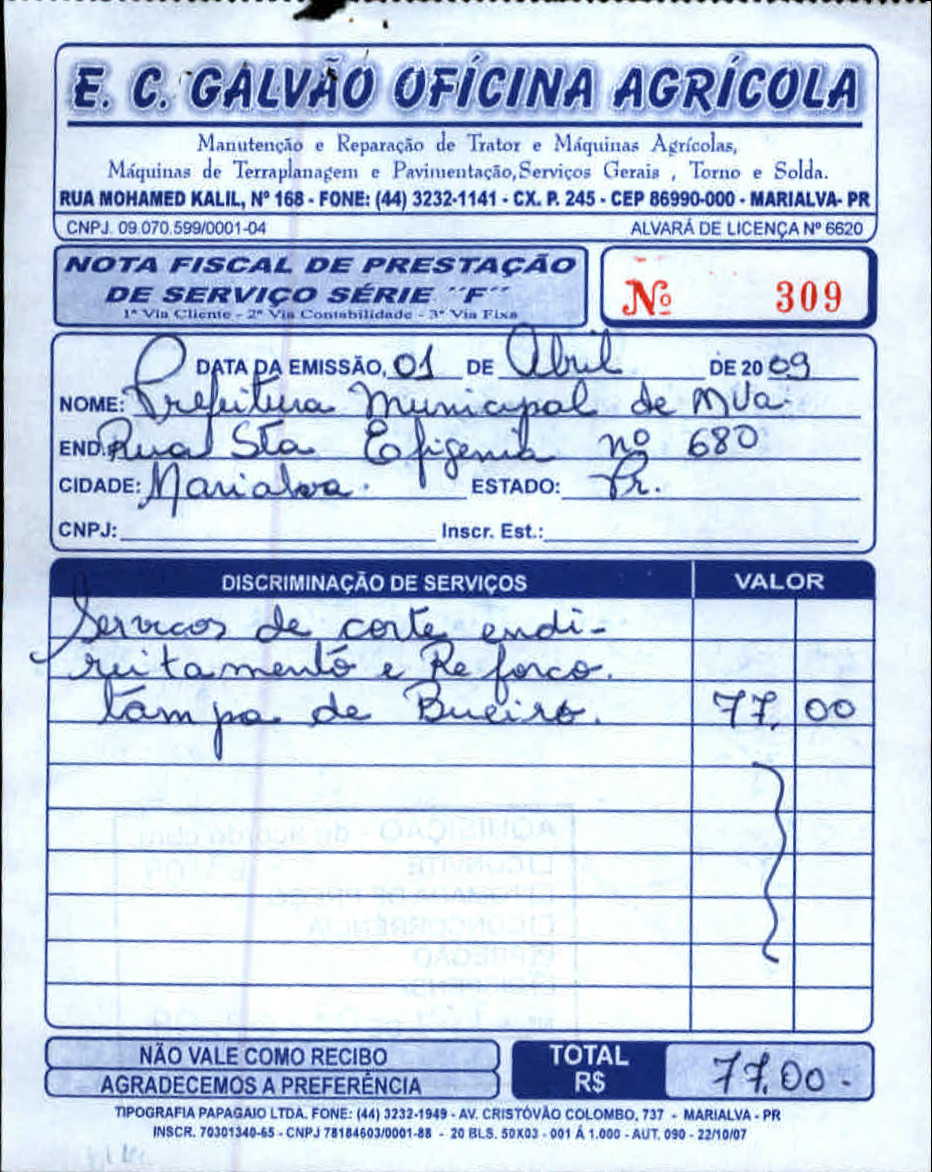 E. C. GALVÃO OFÍCINA AGRÍCOLA
Manutenção e Reparação de Trator e Máquinas Agrícolas,
Máquinas de Terraplanagem e Pavimentação,Serviços Gerais , Torno e Solda.
RUA MOHAMED KALIL, Nº 168 - FONE: (44) 3232-1141 - CX. P. 245 - CEP 86990-000 - MARIALVA- PR
CNPJ. 09.070.599/0001-04 ALVARÁ DE LICENÇA Nº 6620
NOTA FISCAL DE PRESTAÇÃO
DE SERVIÇO SÉRIE "F"
1ª Via Cliente - 2ª Via Contabilidade - 3ª Via Fixa
Nº 309
DATA DA EMISSÃO, 01 DE Abril DE 20 09
NOME: Prefeitura Municipal de Mva.
END. Rua Sta Efigenia nº 680
CIDADE: Marialva. ESTADO: Pr.
CNPJ: Inscr. Est.:
DISCRIMINAÇÃO DE SERVIÇOS VALOR
Servicos de corte endi-
reitamento e Reforco.
tampa de Bueiro. 77, 00
AQUISIÇÃO - de acordo com
CONVITE
TOMADA DE PREÇO
CONCORRÊNCIA
PREGÃO
NÃO VALE COMO RECIBO
AGRADECEMOS A PREFERÊNCIA
TOTAL
R$ 77,00-
TIPOGRAFIA PAPAGAIO LTDA. FONE: (44) 3232-1949 - AV. CRISTÓVÃO COLOMBO, 737 - MARIALVA - PR
INSCR. 70301340-65 - CNPJ 78184603/0001-88 - 20 BLS. 50X03 - 001 Á 1.000 - AUT. 090 - 22/10/07